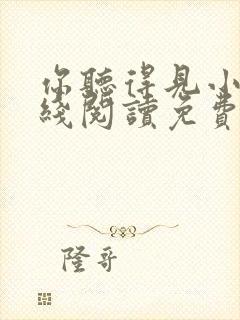 你聽得見小
綫閱讀免費
隆哥